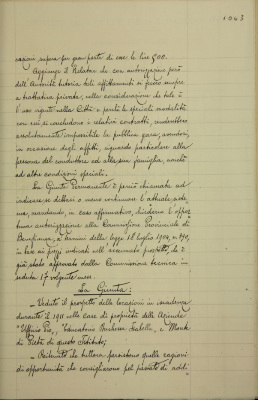 1043
razioni supera per gran parte di esse le lire 500.
Aggiunge il Relatore che con autorizzazione però
dell'Autorità tutoria tali affittamenti si fecero sempre
a trattativa privata, nella considerazione che tale è
l'uso vigente nella Città e perchè le speciali modalità
con cui si concludono i relativi contratti, renderebbero
assolutamente impossibile la pubblica gara; avendosi,
in occasione degli affitti, riguardo particolare alla
persona del conduttore ed alla sua famiglia, nonchè
ad altre condizioni speciali.
La Giunta Permanente è perciò chiamata ad
indicare se debbasi o meno continuare l'attuale siste
ma, mandando, in caso affermativo, chiedersi l'oppor
tuna autorizzazione alla Commissione Provinciale di
Beneficenza, ai termini della legge 18 luglio 1904, n. 390,
in base ai prezzi indicati nell'accennato prospetto che è
già stato approvato dalla Commissione tecnica in
seduta 17 volgente mese.
La Giunta:
— Veduto il prospetto delle locazioni in scadenza
durante il 1911 nelle case di proprietà delle Aziende
"Ufficio Pio, "Educatorio Duchessa Isabella, Monte
di Pietà di questo Istituto;
— Ritenuto che tuttora persistono quelle ragioni
di opportunità che consigliarono pel passato di addi